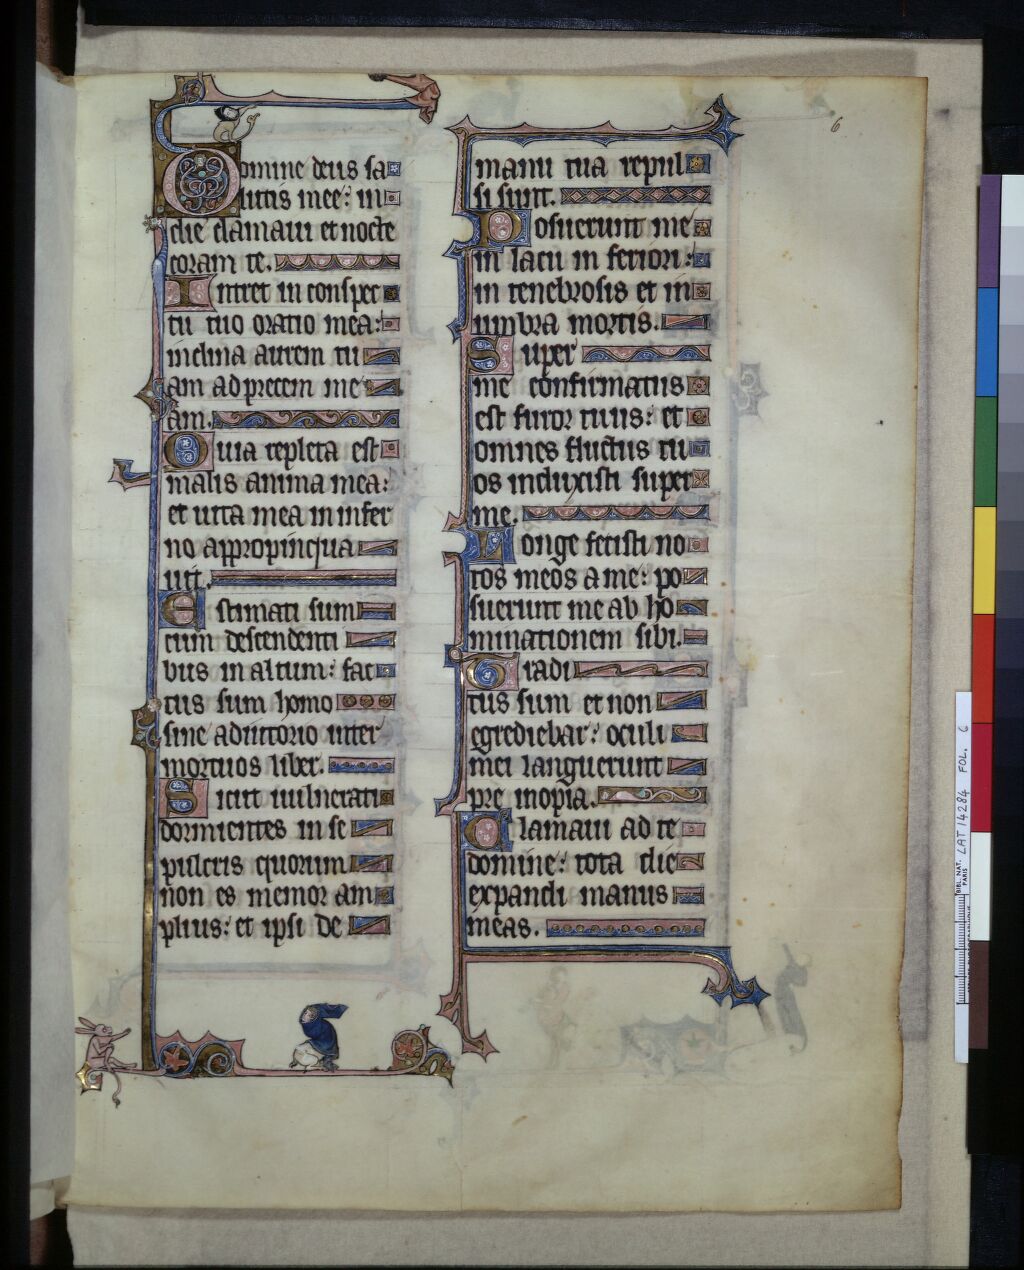 Domine deus sa
lutis mee: in
die clamaui et nocte
coram te.
Intret in conspec
tu tuo oratio mea:
inclina aurem tu
am ad precem me
am.
Quia repleta est
malis anima mea:
et uita mea in infer
no appropinqua
uit.
Estimati sum
cum descendenti
bus in altum: fac
tus sum homo
sine adiutorio inter
mortuos liber.
Sicut uulnerati
dormientes in se
pulcris quorum
non es memor am
plius: et ipsi de
manu tua repul
si sunt.
Posuerunt me
in lacu in feriori:
in tenebrosis et in
umbra mortis.
Super
me confirmatus
est furor tuus: et
omnes fluctus tu
os induxisti super
me.
Longe fecisti no
tos meos a me: po
suerunt me ab ho
minationem sibi.
Tradi
tus sum et non
egrediebar: oculi
mei languerunt
pre inopia.
Clamaui ad te
domine: tota die
expandi manus
meas.
6
BIBL. NAT. PARIS
LAT 14284 FOL. 6